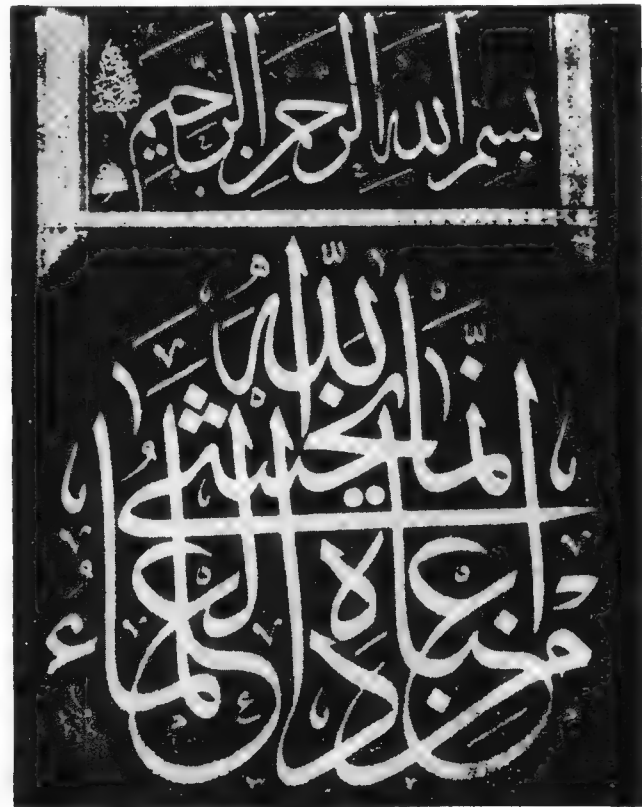 بسم الله الرحمن الرحيم
إنما يخشى الله من عباده العلماء